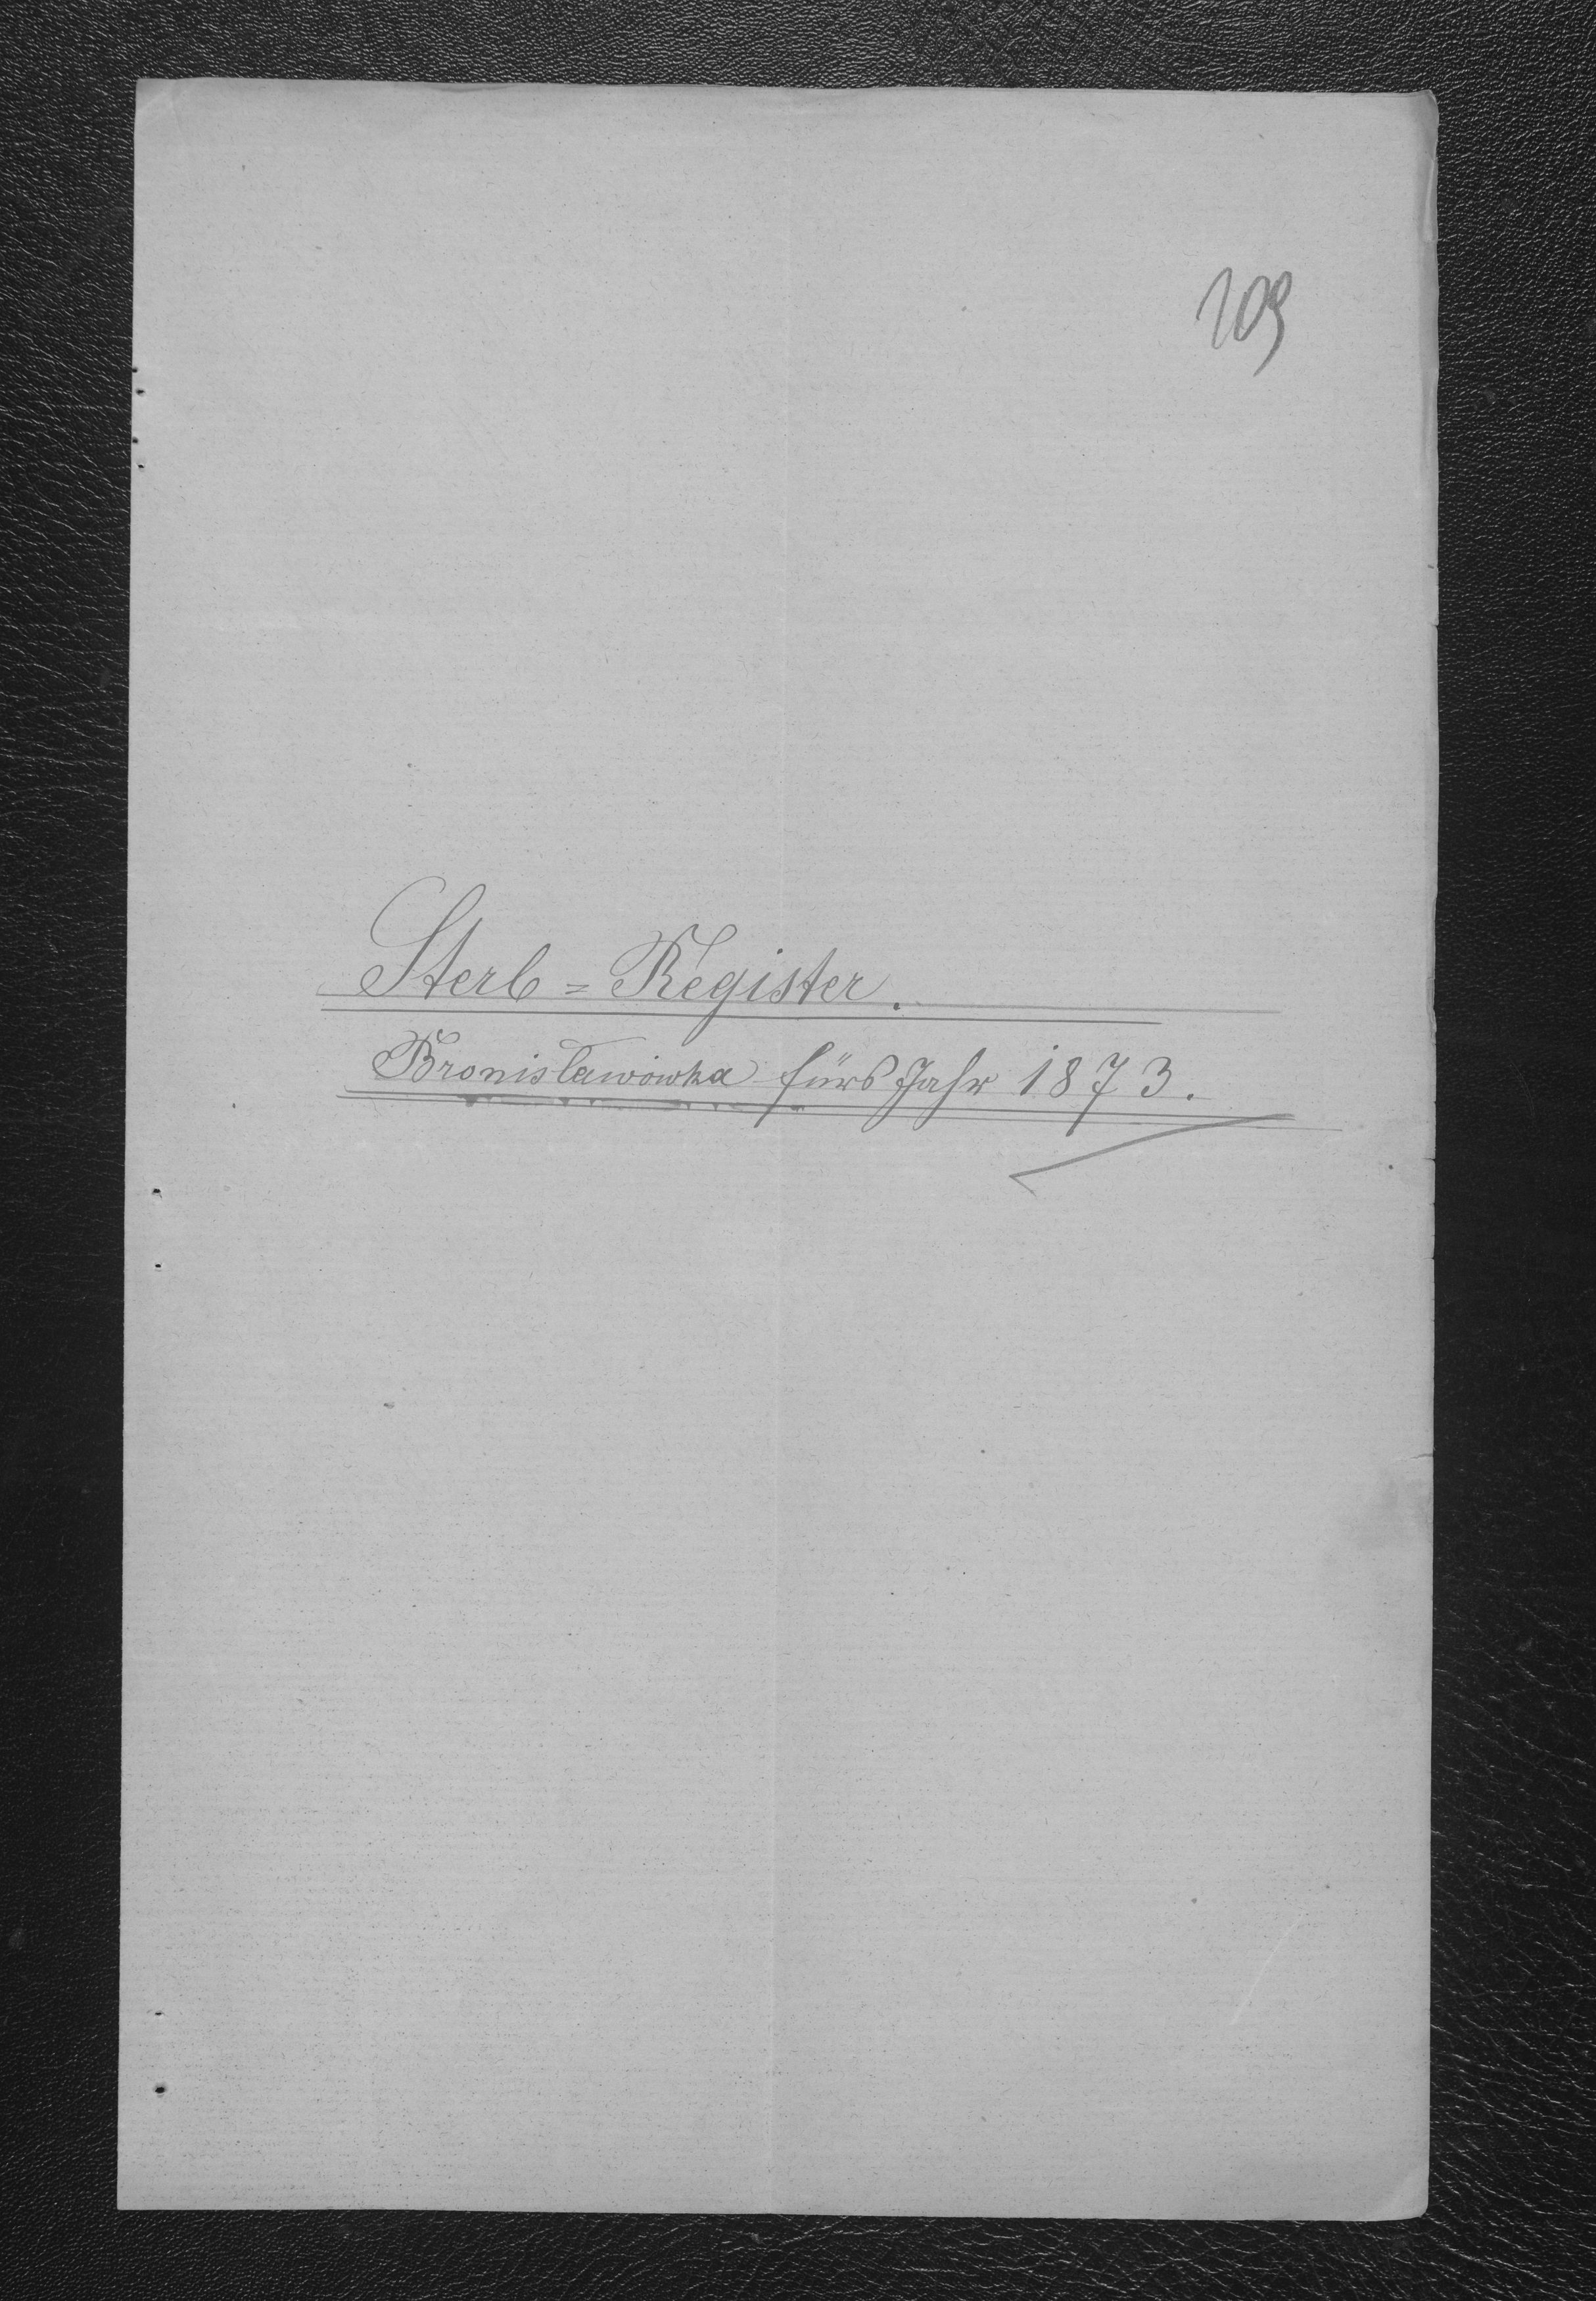 109
Sterb = Register.
Bronisławòwka fürs Jahr 1873.